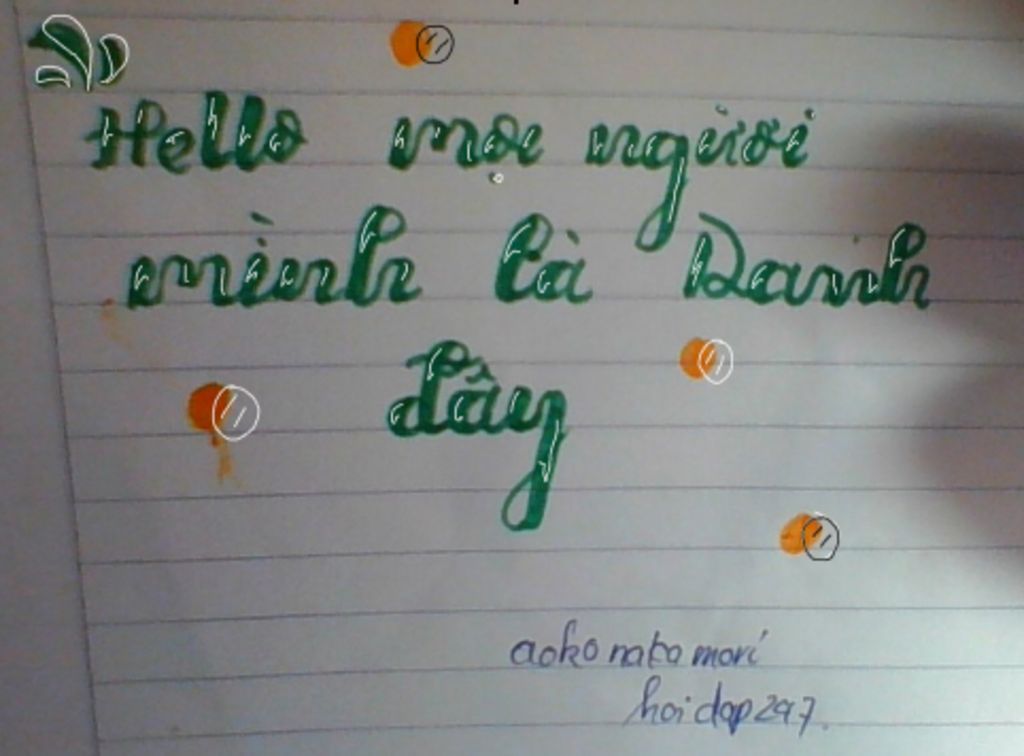 Hello mọi người
mình là Danh
đây
aoko nakamori
hoidap247.